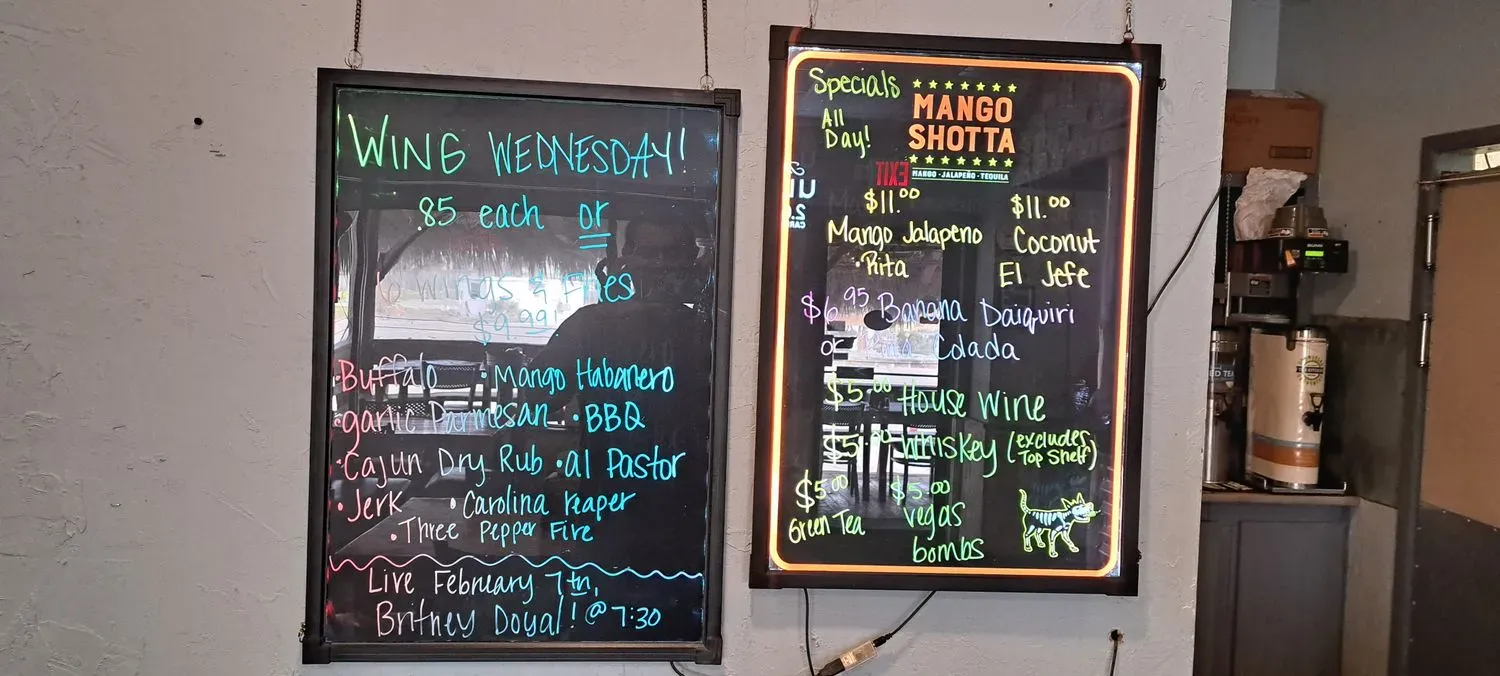 WING WEDNESDAY!
.85 each or
6 wings & Fries
$9.99!
·Buffalo ·Mango Habanero
·garlic Parmesan ·BBQ
·Cajun Dry Rub ·al Pastor
·Jerk ·Carolina reaper
·Three Pepper Fire
Live February 7th,
Britney Doyal! @ 7:30
Specials
All
Day!
MANGO
SHOTTA
MANGO · JALAPEÑO · TEQUILA
EXIT
$11.00
Mango Jalapeno
·Rita
$11.00
Coconut
El Jefe
$6.95 Banana Daiquiri
or Pina Colada
$5.00 House Wine
$5.00 Whiskey (excludes
Top Shelf)
$5.00
Green Tea
$5.00
vegas
bombs